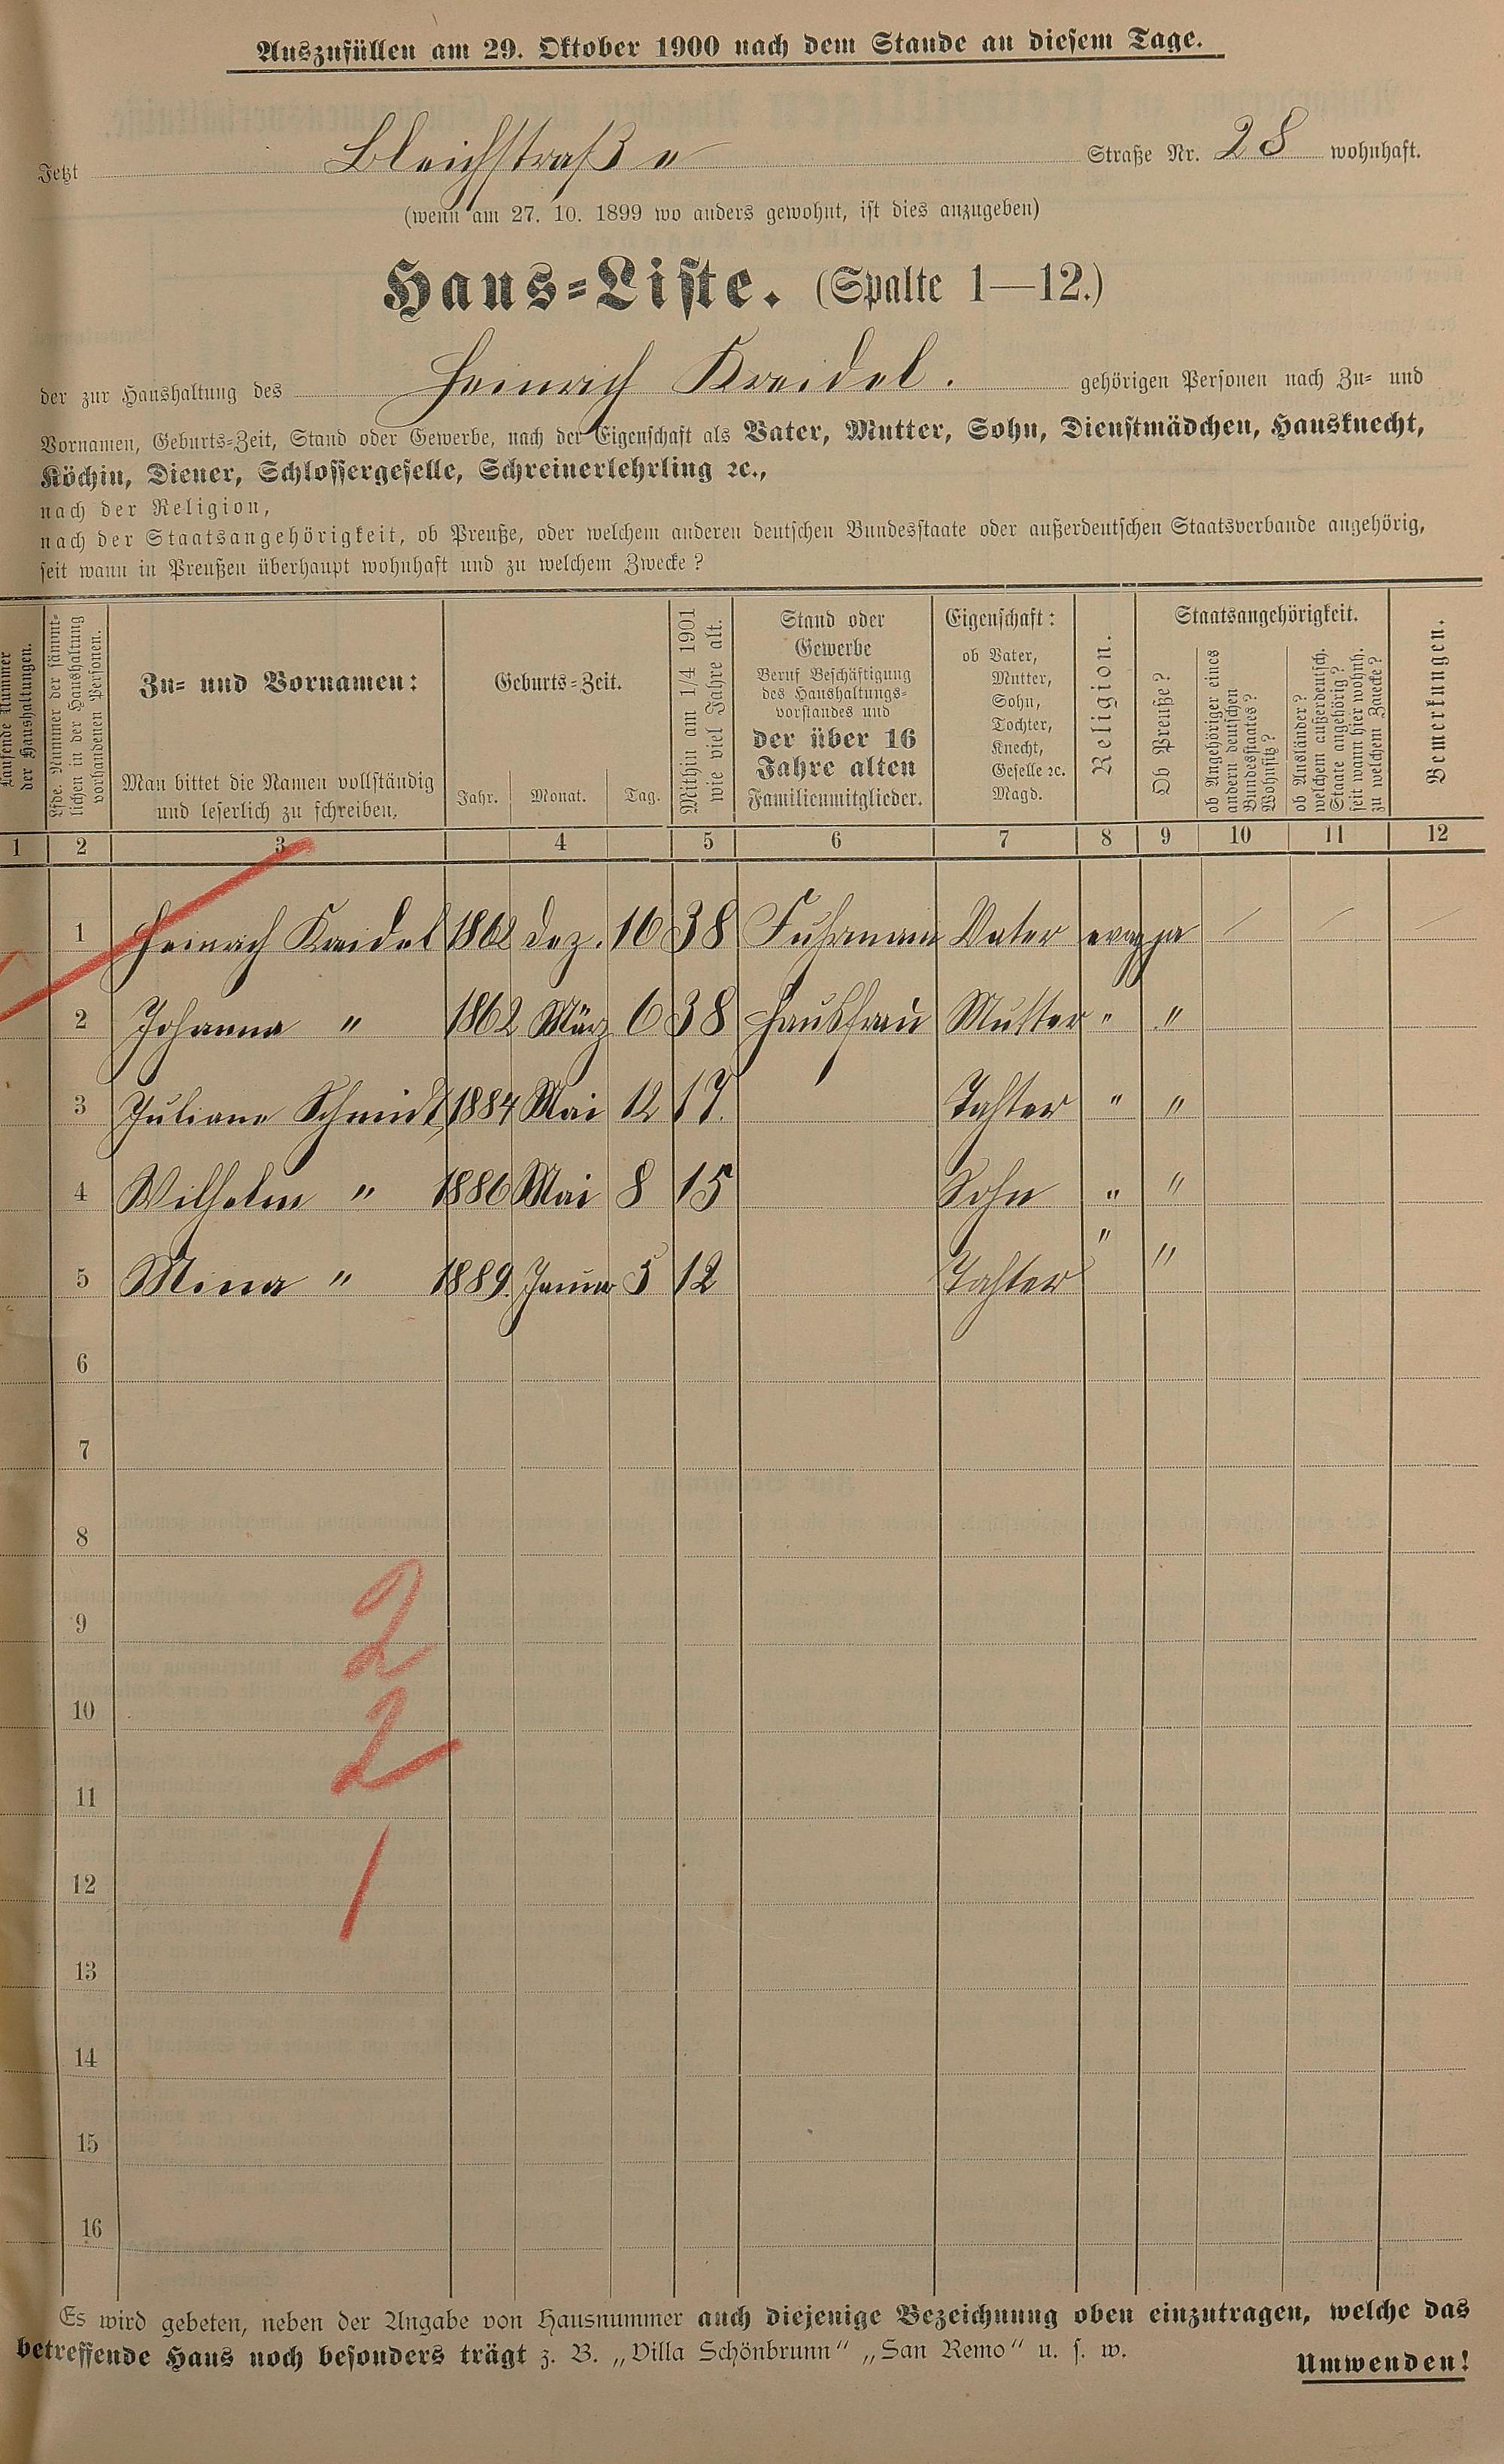 Auszufüllen am 29. Oktober 1900 nach dem Stande an diesem Tage.
Jetzt Bleichstraße Straße Nr. 28 wohnhaft.
(wenn am 27. 10. 1899 wo anders gewohnt, ist dies anzugeben)
Haus-Liste. (Spalte 1—12.)
der zur Haushaltung des Heinrich Kreidel. gehörigen Personen nach Zu- und
Vornamen, Geburts-Zeit, Stand oder Gewerbe, nach der Eigenschaft als Vater, Mutter, Sohn, Dienstmädchen, Hausknecht,
Köchin, Diener, Schlossergeselle, Schreinerlehrling ꝛc.,
nach der Religion,
nach der Staatsangehörigkeit, ob Preuße, oder welchem anderen deutschen Bundesstaate oder außerdeutschen Staatsverbande angehörig,
seit wann in Preußen überhaupt wohnhaft und zu welchem Zwecke?
Laufende Nummer
der Haushaltungen.
Lfde. Nummer der sämmt-
lichen in der Haushaltung
vorhandenen Personen.
Zu- und Vornamen:
Man bittet die Namen vollständig
und leserlich zu schreiben.
Geburts-Zeit.
Jahr. Monat. Tag.
Mithin am 1/4 1901
wie viel Jahre alt.
Stand oder
Gewerbe
Beruf Beschäftigung
des Haushaltungs-
vorstandes und
der über 16
Jahre alten
Familienmitglieder.
Eigenschaft:
ob Vater,
Mutter,
Sohn,
Tochter,
Knecht,
Geselle ꝛc.
Magd.
Religion.
Staatsangehörigkeit.
Ob Preuße?
ob Angehöriger eines
andern deutschen
Bundesstaates?
Wohnsitz?
ob Ausländer?
welchem außerdeutsch.
Staate angehörig?
seit wann hier wohnh.
zu welchem Zwecke?
Bemerkungen.
1 2 3 4 5 6 7 8 9 10 11 12
1 Heinrich Kreidel 1862 Dez. 16 38 Fuhrmann Vater evang ja
2 Johanna " 1862 März 6 38 Hausfrau Mutter " "
3 Juliane Schmidt 1884 Mai 12 17. Tahter " "
4 Wilhelm " 1886 Mai 8 15 Sohn " "
5 Mina " 1889. Januar 5 12 Tahter " "
6
7
8
9
2
10
2
11
12
1
13
14
15
16
Es wird gebeten, neben der Angabe von Hausnummer auch diejenige Bezeichnung oben einzutragen, welche das
betreffende Haus noch besonders trägt z. B. „Villa Schönbrunn" „San Remo" u. s. w.
Umwenden!